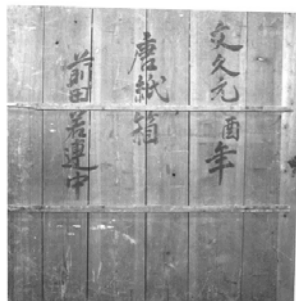 文久元酉年
唐紙箱
前田若連中